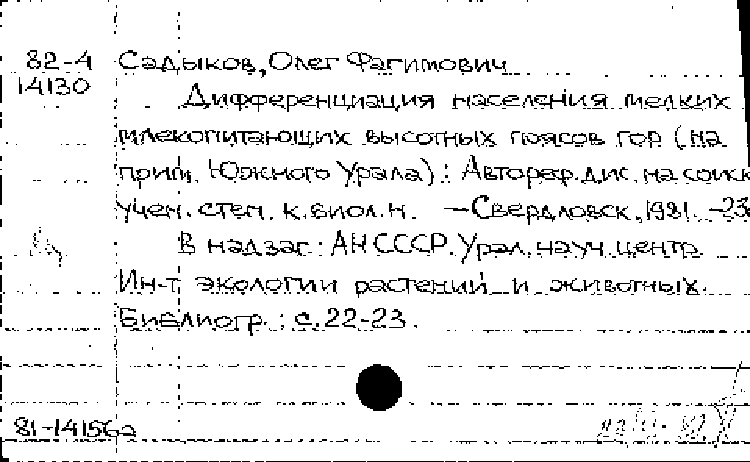 82-4 Садыков, Олег Фагимович
14130
Дифференциация населения мелких
млекопитающих высотных поясов гор (на
прим. Южного Урала): Автореф. дис. на соиск
учен. степ. к. биол. н. — Свердловск, 1981. -23
В надзаг.: АН СССР. Урал. науч. центр.
Ин-т экологии растений и животных.
Библиогр.: с. 22-23.
81-14156а